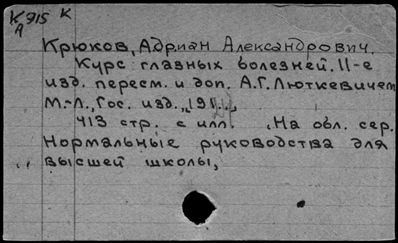 К915 К
А
Крюков, Адриан Александрович.
Курс глазных болезней. 11-е
изд. пересм. и доп. А.Г. Люткевичем
М.-Л., Гос. изд.,
413 стр. с илл. . На обл. сер.
Нормальные руководства для
высшей школы,